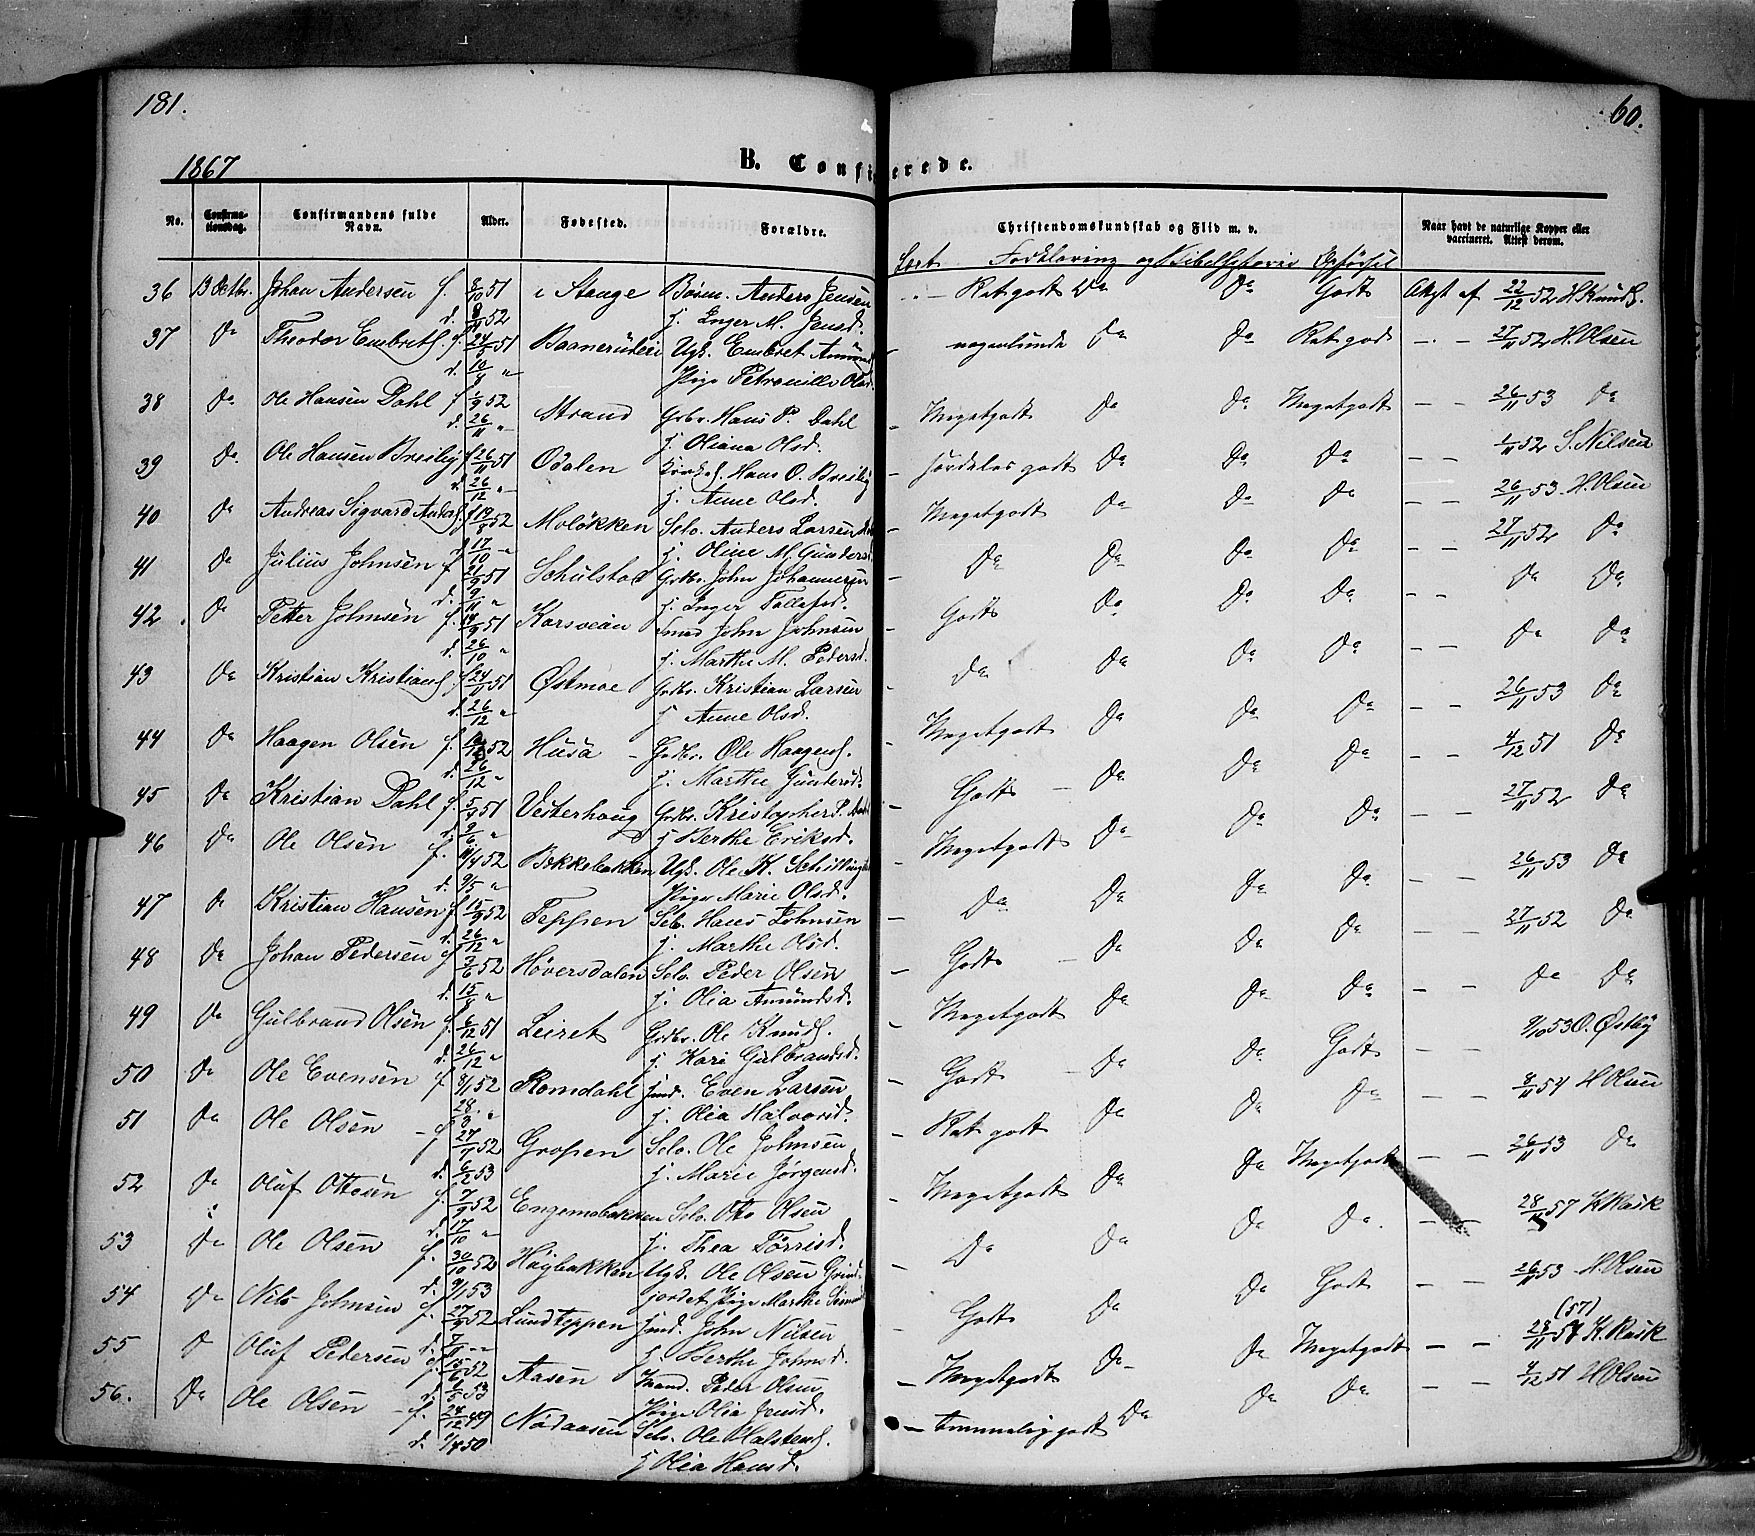 181.
60.
1867
B. Confi erede.
No.
Confirma-
tionsdag.
Confirmandens fulde
Navn.
Alder.
Fødested.
Forældre.
Christendomskundskab og Flid m. v.
Naar havt de naturlige Kopper eller
vaccineret. Attest derom.
Opførsel
36 13 Octbr. Johan Andersen f. 3/10 51 i Stange Anders Jensen — Ret godt Do Do Godt Attst af 22/12 52 H Knuds.
d. 52 j. Inger M. Jensd.
37 Do Theodor Embreths. f. 24/5 51 Ugk. Embret — nogenlunde Do Do Ret godt — — 27/11 52 H. Olsen
d. Pige Petronille Olsd.
38 Do Ole Hansen Dahl f. 1/9 52 Strand Grbr. Hans P. Dahl Meget godt Do Do Meget godt — — 26/11 53 Do
d. 26/11 " j. Oliana Olsd.
39 Do Ole Hansen Bresiby f. 26/11 51 Odalen Hans O. Bresiby — godt Do Do Do — — 1/11 52 S. Nilsen
d. 26/12 " j. Anne Olsd.
40 Do Andreas Sigvard Anders. f. 19/8 52 Moløkken Selv. Anders Larsen — Meget godt Do Do Do — — 26/11 53 H. Olsen
d. 17/10 " j. Oline M. Gunders.
41 Do Julius Johnsen f. 21/9 51 Schulstad Grbr. John Johannesen — Do Do Do Do — — 27/11 52 Do
d. 9/11 " j. Inger Tollefsd.
42 Do Petter Johnsen f. 14/9 51 Korsveien Smed John Johnsen — Godt Do Do Do — — Do Do
d. 26/10 " j. Marthe M. Pedersd.
43 Do Kristian Kristians. f. 24/11 51 Østmoe Grdbr. Kristian Larsen — Do Do Do Do — — Do Do
d. 26/12 " j. Anne Olsd.
44 Do Haagen Olsen f. 52 Husa Grdbr. Ole Haagens. — Meget godt — Do Do Do — — 26/11 53 Do
d. 26/12 " j. Marthe Gundersd.
45 Do Kristian Dahl f. 5/4 51 Vesterhaug Grdbr. Kristopher P. Dahl — Godt — Do Do Do — — 4/12 51 Do
d. 9/6 " j. Berthe Eriksd.
46 Do Ole Olsen f. 11/4 52 Bekkebakken Ugk. Ole K. — Meget godt Do Do Do — — 27/11 52 Do
d. 9/5 " Pige Marie Olsd.
47 Do Kristian Hansen f. 15/9 52 Teppen Selv. Hans Johnsen — Do Do Do Do — — 26/11 53 Do
d. 26/12 " j. Marthe Olsd.
48 Do Johan Pedersen f. 3/6 52 Høversdalen Selv. Peder Olsen — Godt — Do Do Do — — 27/11 52 Do
d. 15/8 " j. Olia Amundsd.
49 Do Gulbrand Olsen f. 6/12 51 Leiret Grdbr. Ole Knuds. — Meget godt Do Do Do — — Do Do
d. 26/12 " j. Kari Gulbrandsd.
50 Do Ole Evensen f. 8/1 52 Romdahl Even Larsen — Godt — Do Do Godt — — 9/10 53 O. Østby
d. 28/3 " j. Olia Halvorsd.
51 Do Ole Olsen f. 27/11 52 Gropen Selv. Ole Johnsen — Ret godt Do Do Do — — 8/11 54 H Olsen
d. 6/2 53 j. Marie Jørgensd.
52 Do Oluf Ottesen f. 7/9 52 Engemobakken Selv. Otto Olsen — Meget godt Do Do Meget godt — — 26/11 53 Do
d. 17/10 " j. Thea Tørrisd.
53 Do Ole Olsen f. 30/10 52 Høybakken Ugk. Ole Olsen Grind- — Do Do Do Do — — 28/11 57 K Rask
d. 9/1 53 jordet Pige Marthe
54 Do Nils Johnsen f. 27/9 52 Lundteppen John Nilsen — Godt Do Do Godt — — 26/11 53 H. Olsen
d. 7/11 " j. Berthe Johnsd.
55 Do Oluf Pedersen f. 15/6 52 Aasen Peder Olsen — Meget godt Do Do Meget godt — — (57) 28/11 57 K. Rask
d. 1/5 53 Pige Olia Jensd.
56. Do Ole Olsen f. 24/12 49 Nødaasen Selv. Ole Halstens. — temmelig godt Do Do Do — — 4/12 51 H Olsen
d. 1/4 50 j. Olea Hansd.